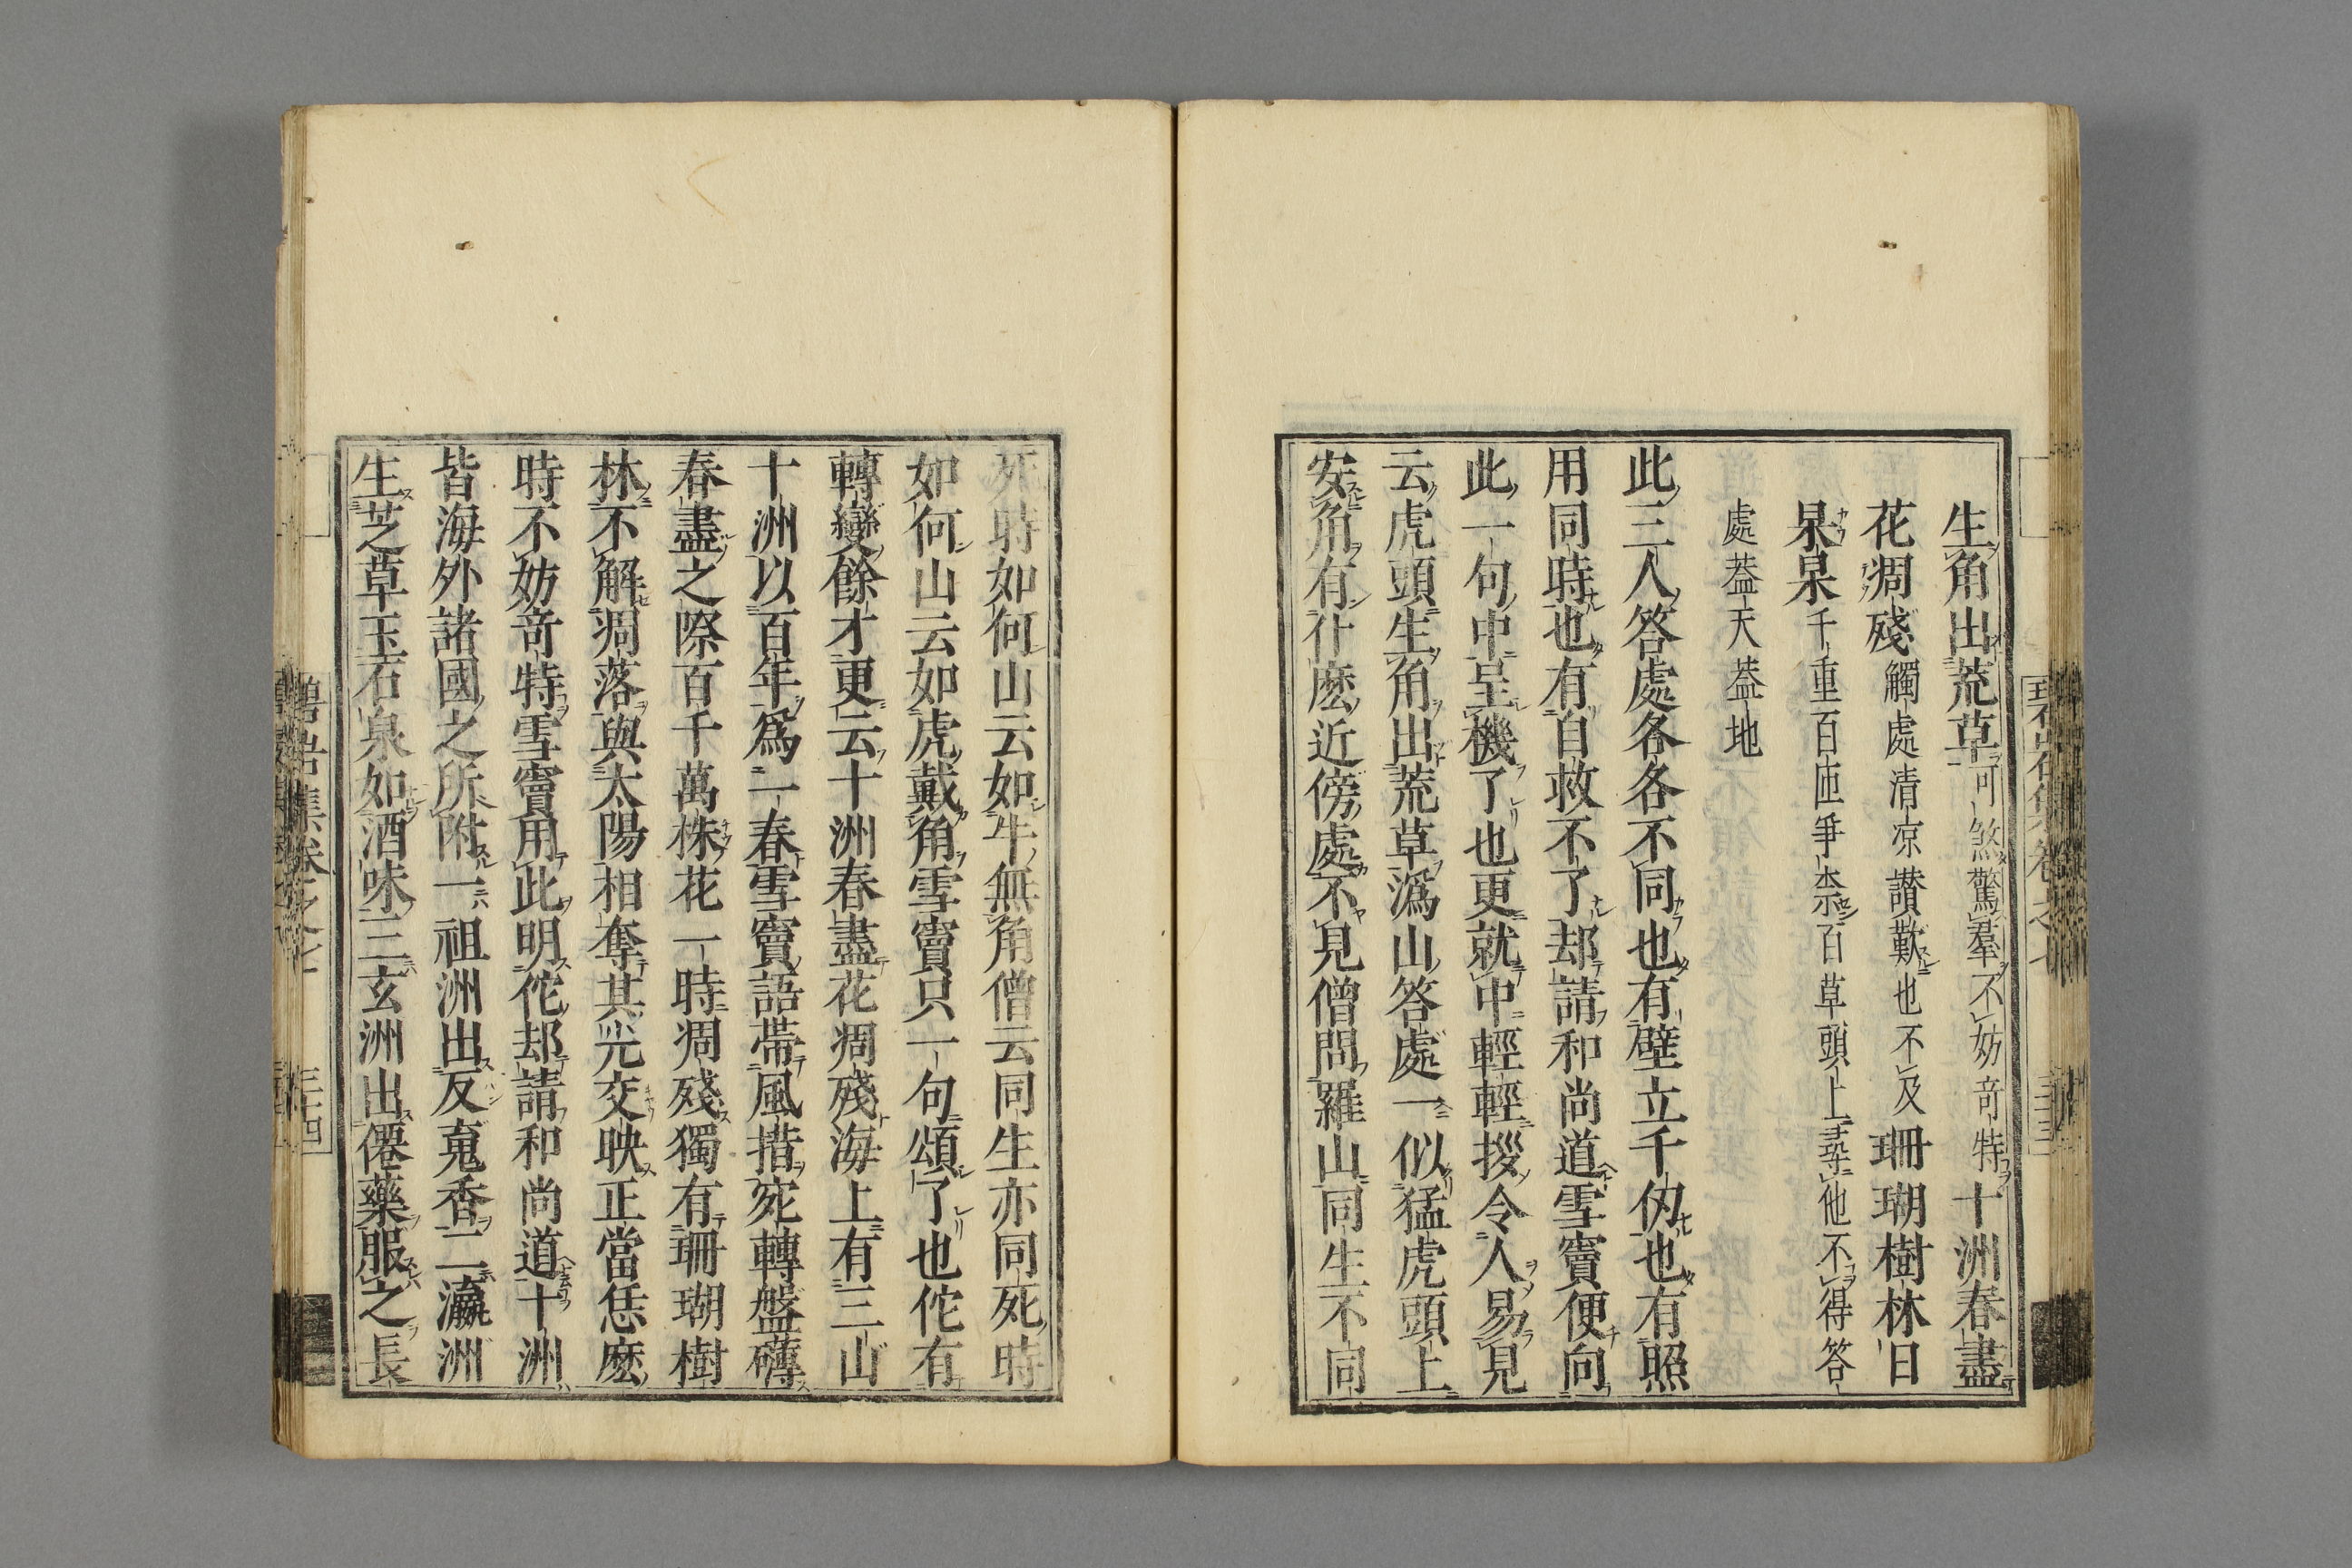 生角出荒草可煞驚羣不妨竒特十洲春盡
花凋殘觸處清凉讃歎也不及珊瑚樹林日
杲杲千重百匝爭柰百草頭上尋他不得答
處葢天葢地
此三人答處各各不同也有壁立千仭也有照
用同時也有自救不了却請和尚道雪竇便向
此一句中呈機了也更就中輕輕拶令人易見
云虎頭生角出荒草潙山答處一似猛虎頭上
安角有什麽近傍處不見僧問羅山同生不同
死時如何山云如牛無角僧云同生亦同死時
如何山云如虎戴角雪竇只一句頌了也佗有
轉變餘才更云十洲春盡花凋殘海上有三山
十洲以百年爲一春雪竇語帶風措宛轉盤礴
春盡之際百千萬株花一時凋殘獨有珊瑚樹
林不解凋落與太陽相奪其光交映正當恁麽
時不妨竒特雪竇用此明佗却請和尚道十洲
皆海外諸國之所附一祖洲出反䰟香二瀛洲
生芝草玉石泉如酒味三玄洲出僊藥服之長